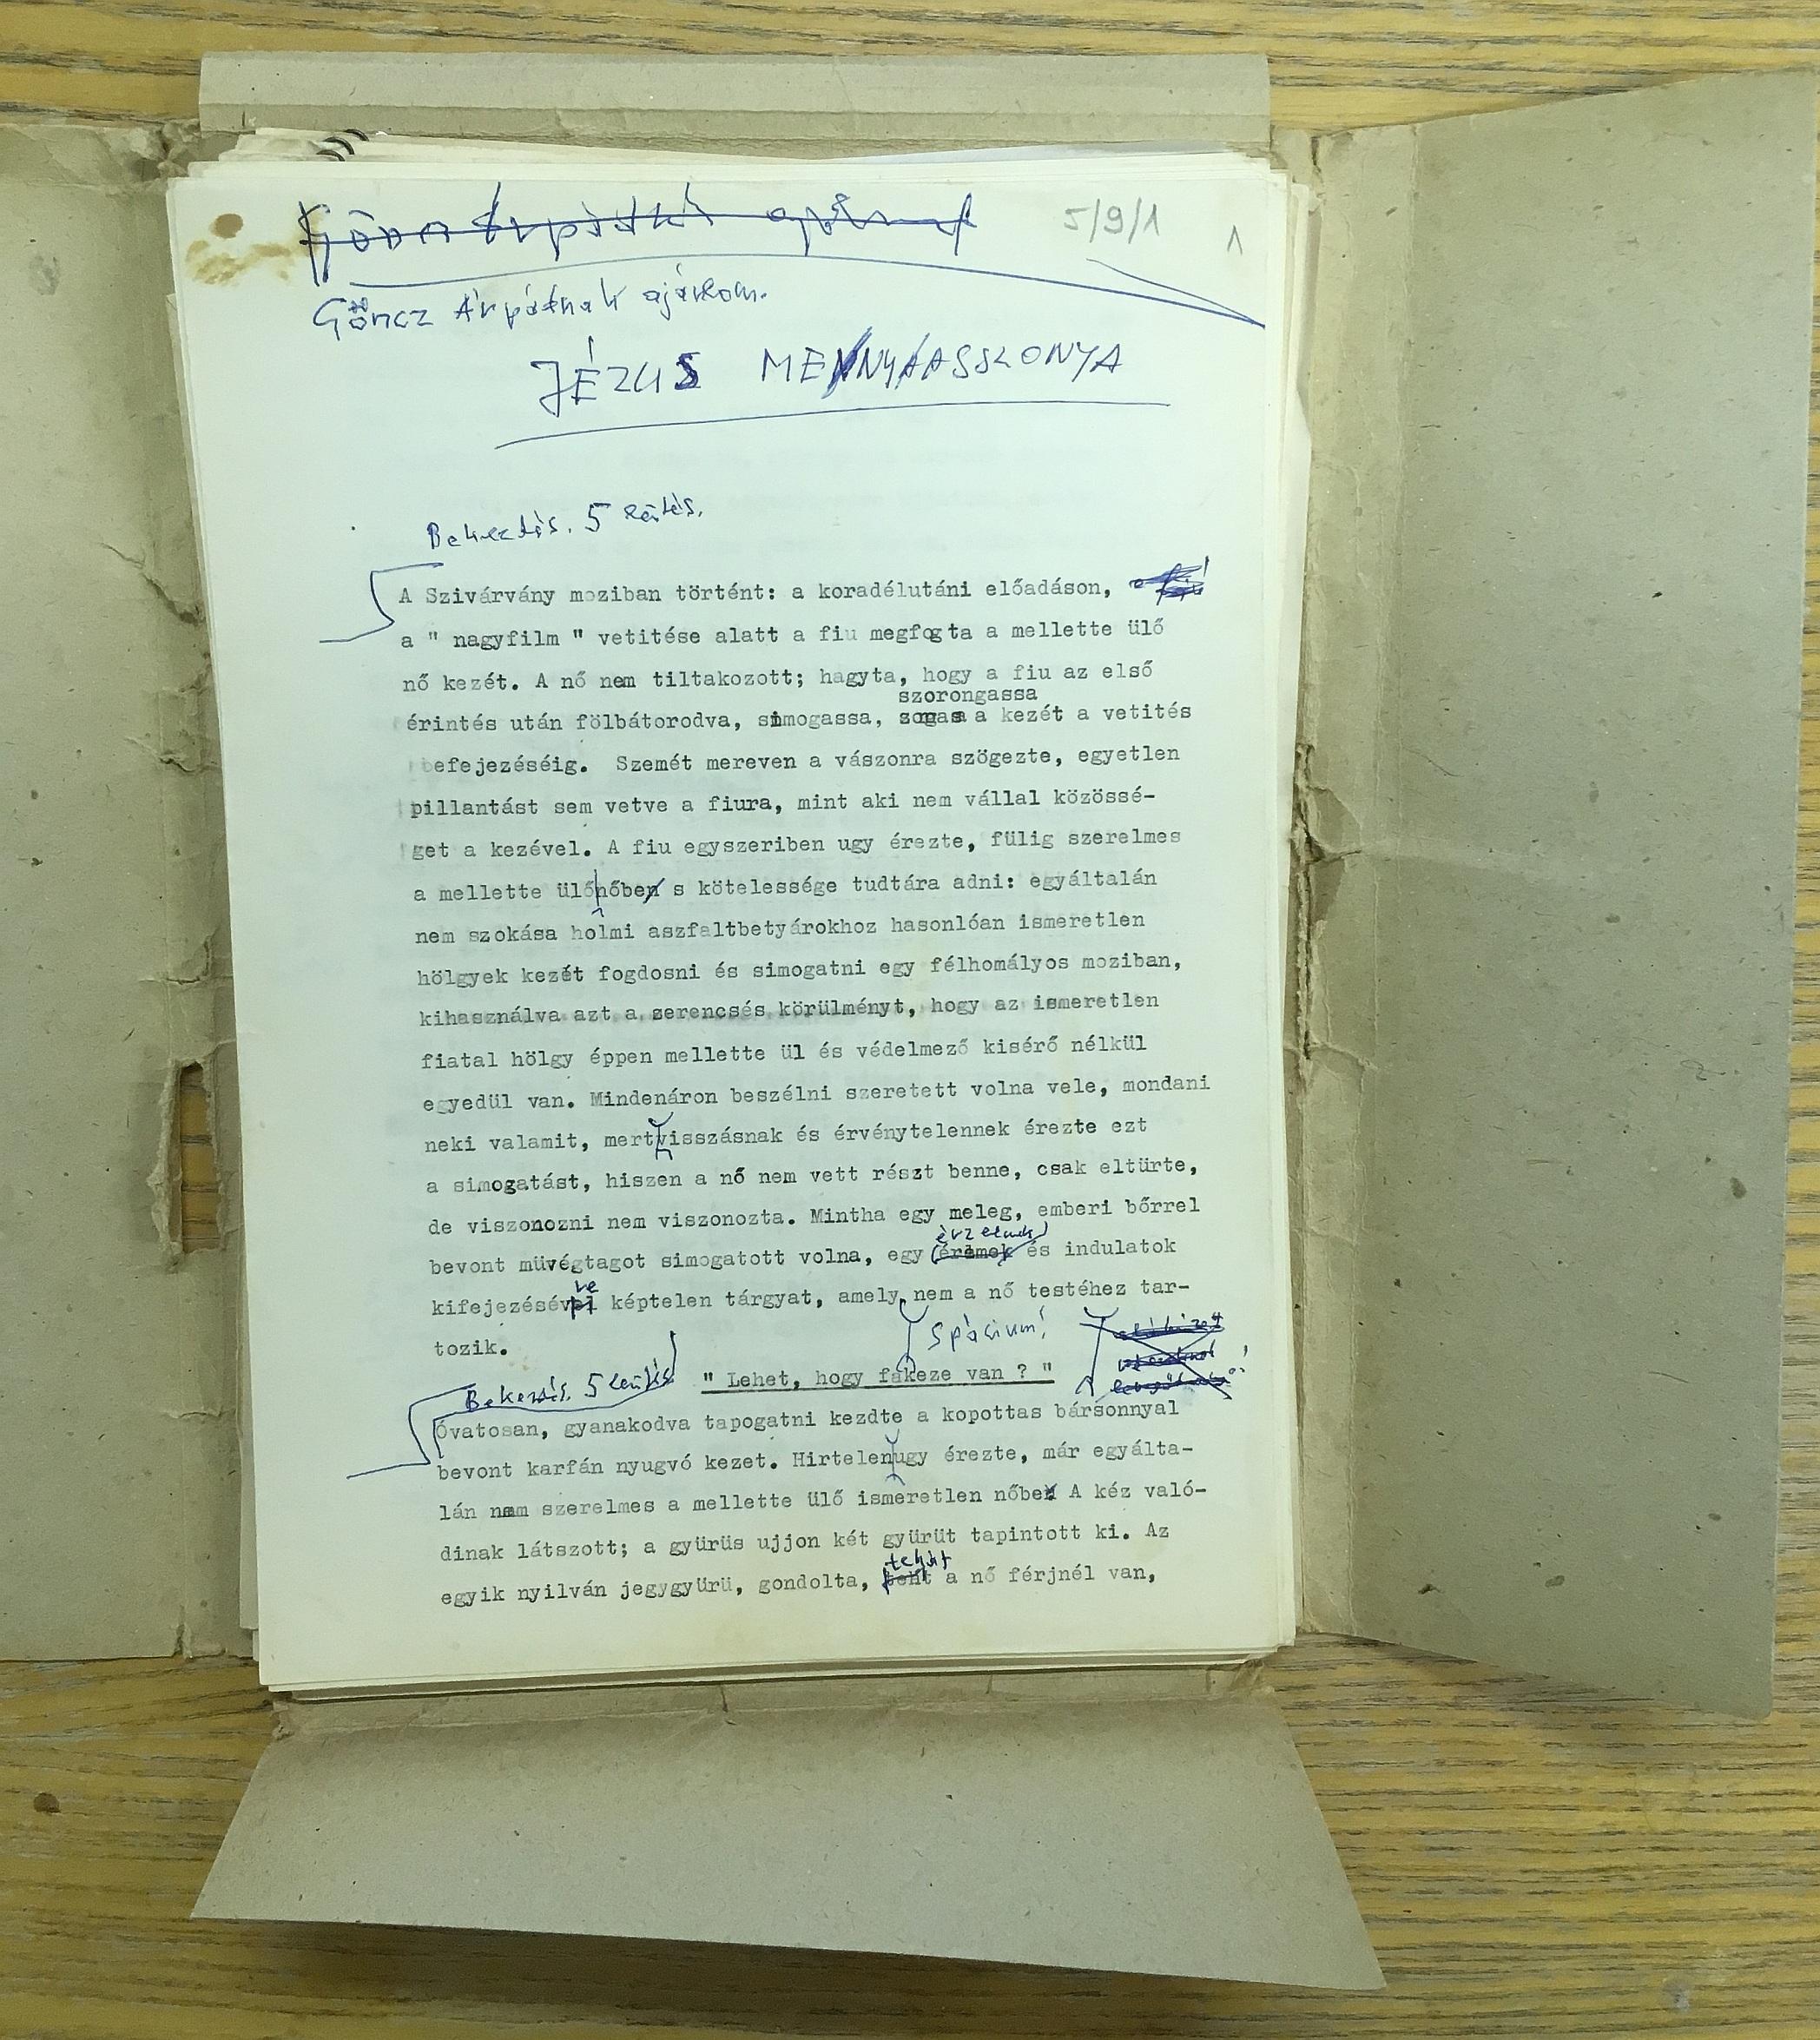 Göncz Árpádnak ajánlom
5/9/1
1
Göncz Árpádnak ajánlom.
JÉZUS MENNYASSZONYA
Bekezdés. 5 leütés.
A Szivárvány moziban történt: a koradélutáni előadáson,
a " nagyfilm " vetitése alatt a fiu megfogta a mellette ülő
nő kezét. A nő nem tiltakozott; hagyta, hogy a fiu az első
szorongassa
érintés után fölbátorodva, simogassa, a kezét a vetités
befejezéséig. Szemét mereven a vászonra szögezte, egyetlen
pillantást sem vetve a fiura, mint aki nem vállal közössé-
get a kezével. A fiu egyszeriben ugy érezte, fülig szerelmes
a mellette ülő nőbe s kötelessége tudtára adni: egyáltalán
nem szokása holmi aszfaltbetyárokhoz hasonlóan ismeretlen
hölgyek kezét fogdosni és simogatni egy félhomályos moziban,
kihasználva azt a szerencsés körülményt, hogy az ismeretlen
fiatal hölgy éppen mellette ül és védelmező kisérő nélkül
egyedül van. Mindenáron beszélni szeretett volna vele, mondani
neki valamit, mert visszásnak és érvénytelennek érezte ezt
a simogatást, hiszen a nő nem vett részt benne, csak eltürte,
de viszonozni nem viszonozta. Mintha egy meleg, emberi bőrrel
érzelmek
bevont müvégtagot simogatott volna, egy és indulatok
re
kifejezésével képtelen tárgyat, amely nem a nő testéhez tar-
Spácium!
tozik.
Bekezdés. 5 leütés
" Lehet, hogy fakeze van ? "
Óvatosan, gyanakodva tapogatni kezdte a kopottas bársonnyal
bevont karfán nyugvó kezet. Hirtelen ugy érezte, már egyálta-
lán nem szerelmes a mellette ülő ismeretlen nőbe. A kéz való-
dinak látszott; a gyürüs ujjon két gyürüt tapintott ki. Az
tehát
egyik nyilván jegygyürü, gondolta, a nő férjnél van,